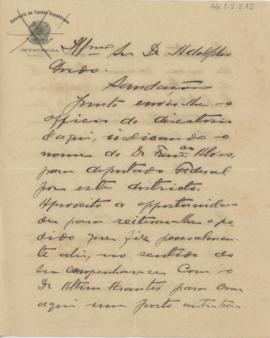 Directorio do Partido Republicano
Illmo Snr Dr Adolpho
Gordo.
Saudações
Junto envio-lhe o
officio do directorio
d'aqui, indicando o
nome do Dr Franco Alves,
para deputado Federal
por este districto.
Aproveito a opportunida-
de para reiterar-lhe o pe-
dido que fiz pessoalmen-
te ahi, no sentido do
snr empenhar-se com o
Dr Altino Arantes para crear
aqui um posto